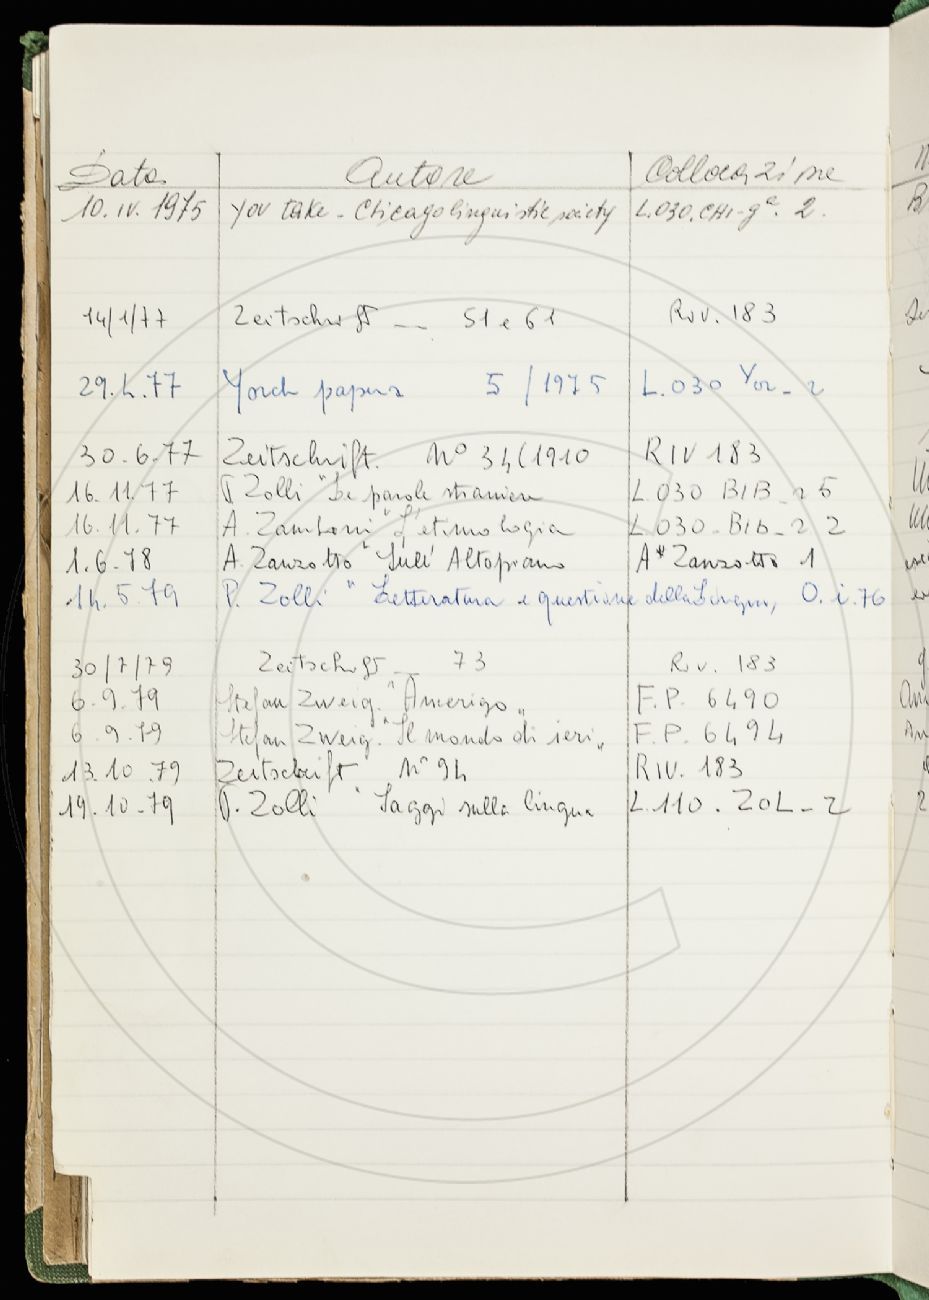 Data Autore Collocazione
10.IV.1975 You take - Chicago linguistic society L.030.CHI-gᵉ. 2.
14/1/77 Zeitschrift -- 51 e 61 Riv. 183
29.4.77 Yorch papers 5/1975 L.030 Yor-2
30.6.77 Zeitschrift. N° 34(1910 RIV 183
16.11.77 P Zolli "Le parole straniere L 030 BIB-2 5
16.11.77 A. Zamboni "L'etimologia L 030-BIB-2 2
1.6-78 A. Zanzotto "Sull' Altopiano A* Zanzotto 1
14.5.79 P. Zolli "Letteratura e questione della Lingua, O.i.76
30/7/79 Zeitschrift - 73 Riv. 183
6.9.79 Stefan Zweig. "Amerigo„ F.P. 6490
6.9.79 Stefan Zweig. "Il mondo di ieri„ F.P. 6494
13.10.79 Zeitschrift N° 94 RIV. 183
19.10-79 P. Zolli "Saggi sulla lingua L.110. ZOL-2